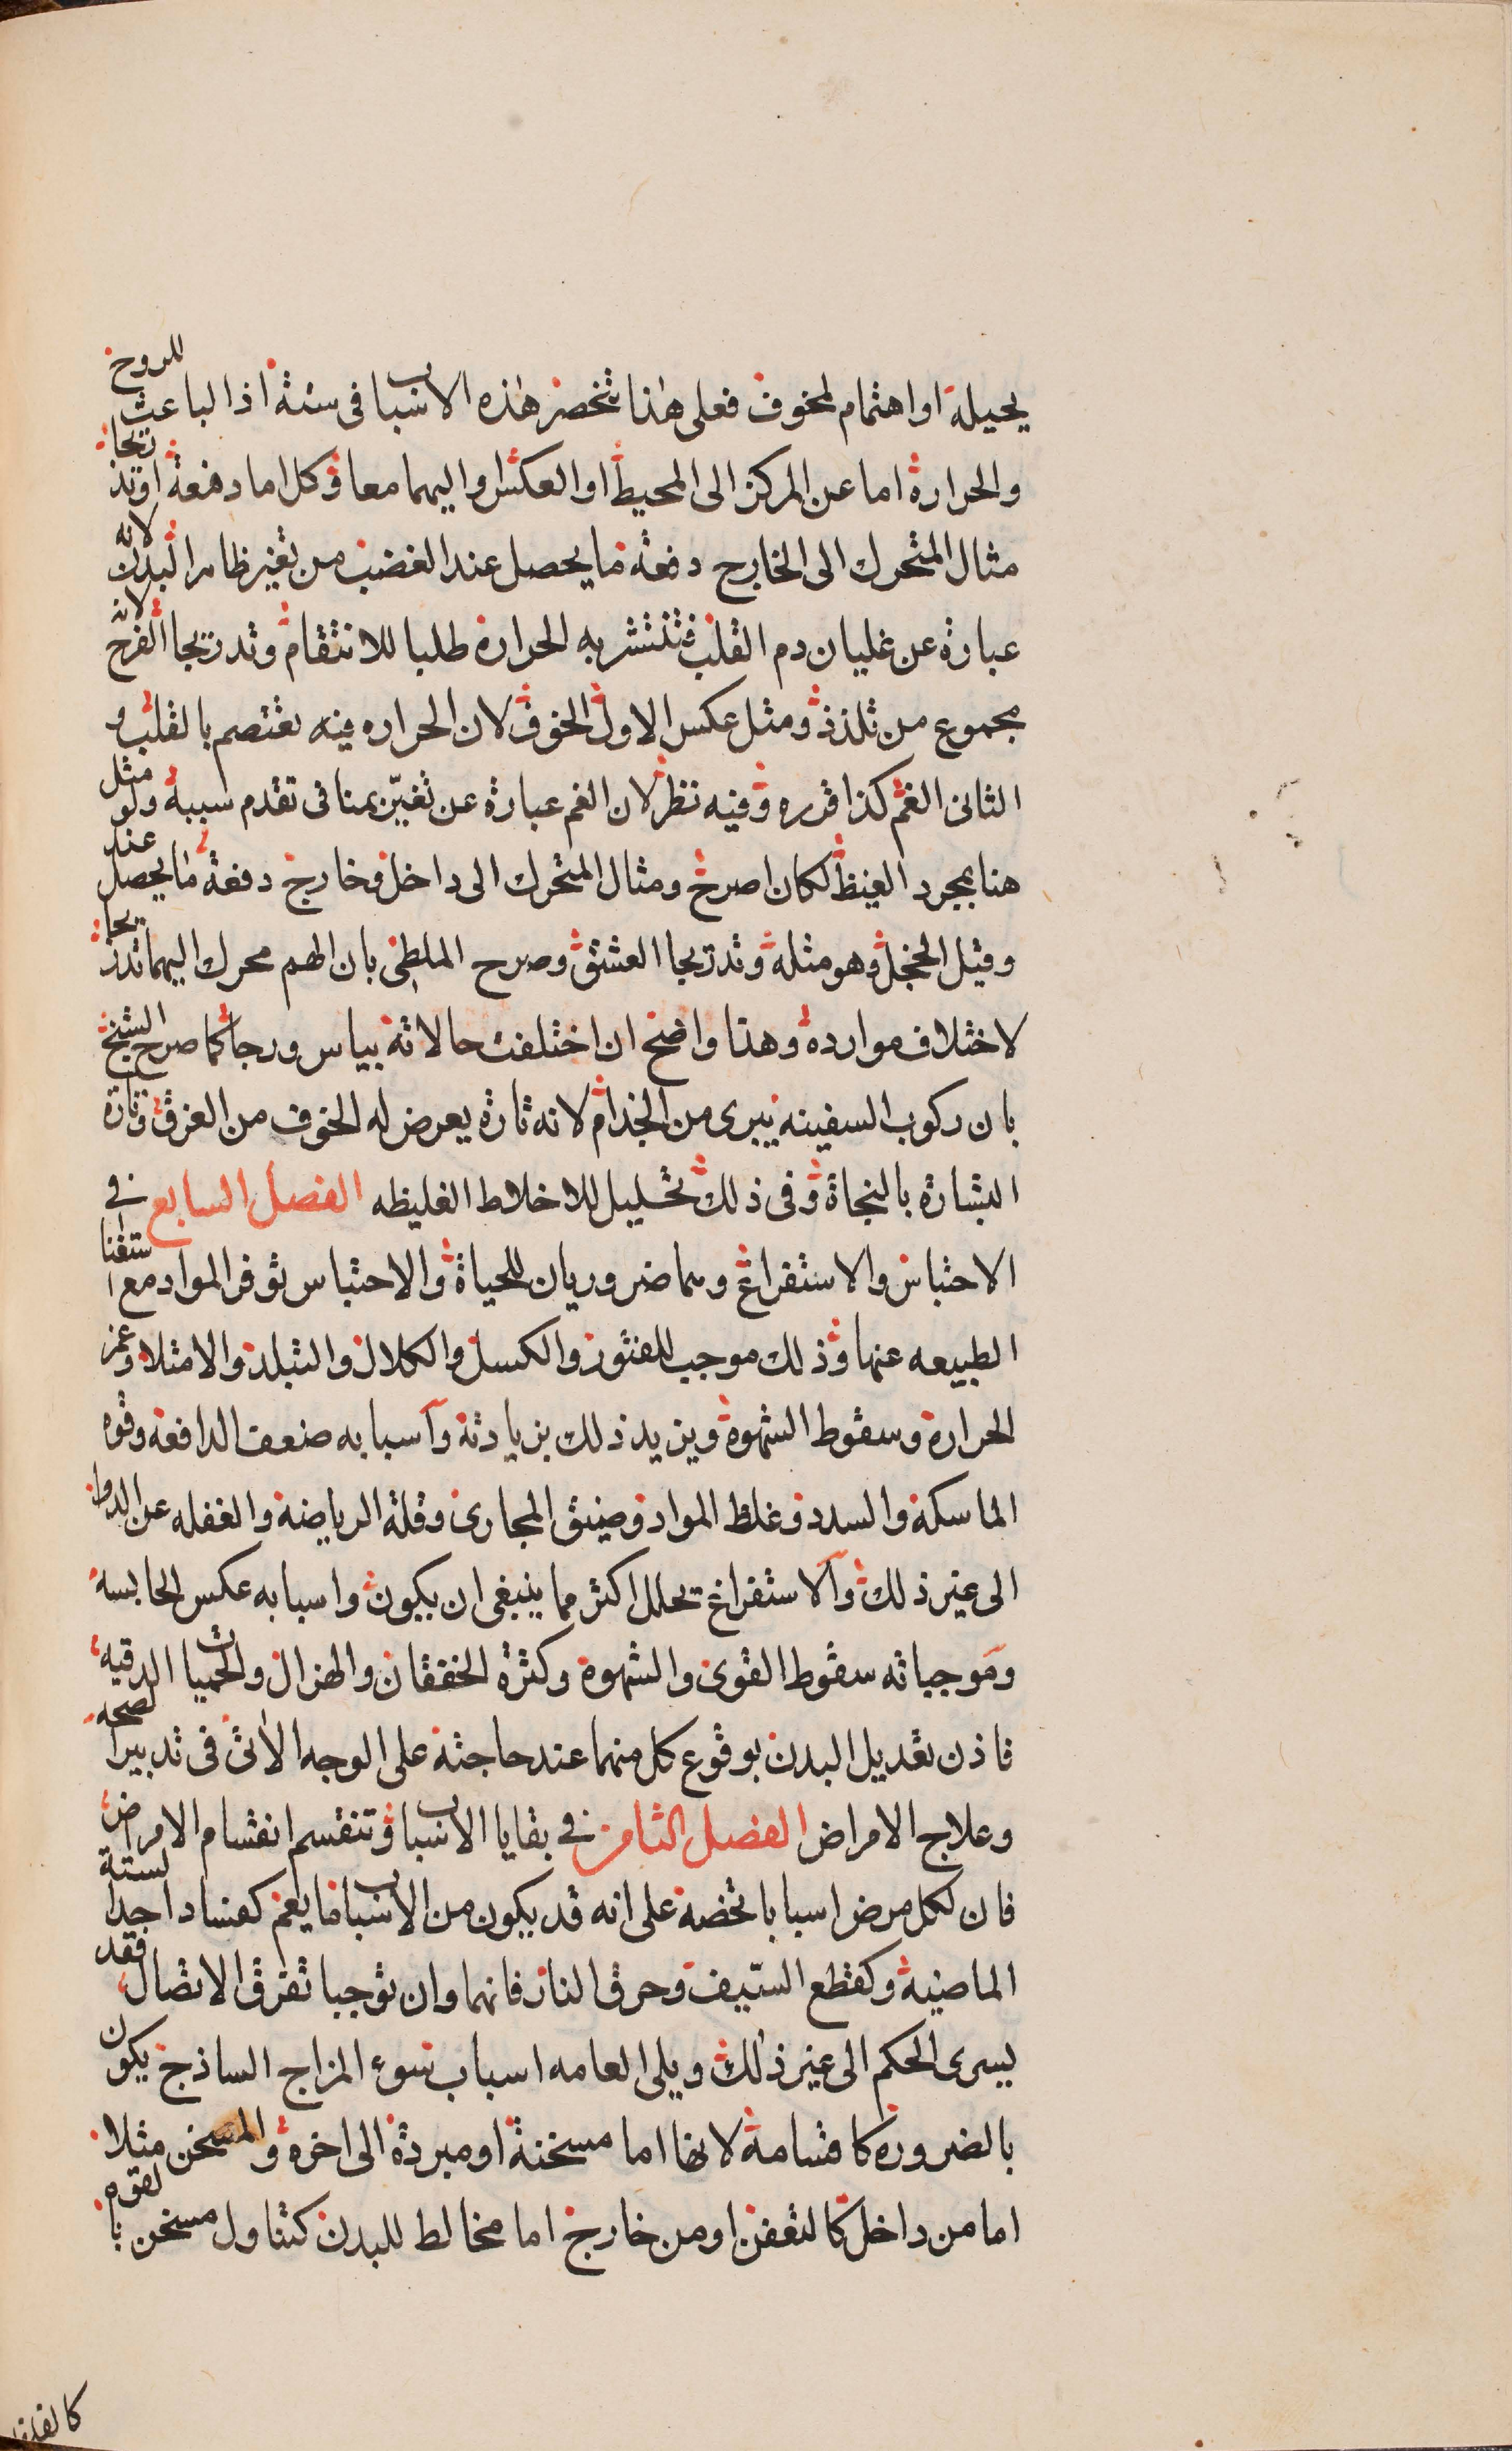 يحيله او اهتمام لمخوف فعلى هذا تنحصر هذه الاسباب فى ستة اذ الباعث للروح
والحرارة اما عن المركز الى المحيط او العكس او اليهما معا وكل اما دفعة او تدريجا
مثال المتحرك الى الخارج دفعة ما يحصل عند الغضب من تغير ظاهر البدن لانه
عبارة عن غليان دم القلب فتنتشر به الحرارة طلبا للانتقام وتدريجا الفرح لانه
مجموع من تلذذ ومثل عكس الاول الخوف لان الحراره فيه تعتصم بالقلب و
الثانى الغم كذا قرره وفيه نظر لان الغم عبارة عن تغير بمنافى تقدم سببه ولو مثل
هنا بمجرد الغيظ لكان اصرح ومثال المتحرك الى داخل وخارج دفعة ما يحصل عند
وقيل الخجل وهو مثله وتدريجا العشق وصرح الملطى بان الهم محرك اليهما تدريجا
لاختلاف موارده وهذا واضح ان اختلفت حالاته بياس ورجا كما صرح الشيخ
بان ركوب السفينه يبرى من الجذام لانه تارة يعرض له الخوف من الغرق وتارة
البشارة بالنجاة وفى ذلك تحليل للاخلاط الغليظه الفصل السابع فى
الاحتباس والاستفراغ وهما ضروريان للحياة والاحتباس توفر المواد مع استغنا
الطبيعه عنها وذلك موجب للفتور والكسل والكلال والتبلد والامتلا وغمر
الحرارة وسقوط الشهوة ويزيد ذلك بزيادته واسبابه ضعف الدافعة وقوه
الماسكة والسدد وغلظ المواد وضيق المجارى وقلة الرياضة والغفله عن الدوا
الى غير ذلك والاستفراغ تحلل اكثر مما ينبغى ان يكون واسبابه عكس الحابسه
وموجباته سقوط القوى والشهوة وكثرة الخفقان والهزال والحميات الدقيه
فاذن تعديل البدن بوقوع كل منهما عند حاجته على الوجه الاتى فى تدبير الصحه
وعلاج الامراض الفصل الثامن فى بقايا الاسباب وتنقسم انقسام الامراض
فان لكل مرض اسبابا تخصه على انه قد يكون من الاسباب ما يعم كفساد احد الستة
الماضيه وكقطع السيف وحرق النار فانهما وان توجبا تفرق الاتصال فقد
يسرى الحكم الى غير ذلك ويلى العامه اسباب سوء المزاج الساذج يكون
بالضروره كاقسامه لانها اما مسخنة او مبردة الى اخره والمسخن مثلا
اما من داخل كالتعفن او من خارج اما مخالط للبدن كتناول مسخن بالقوه